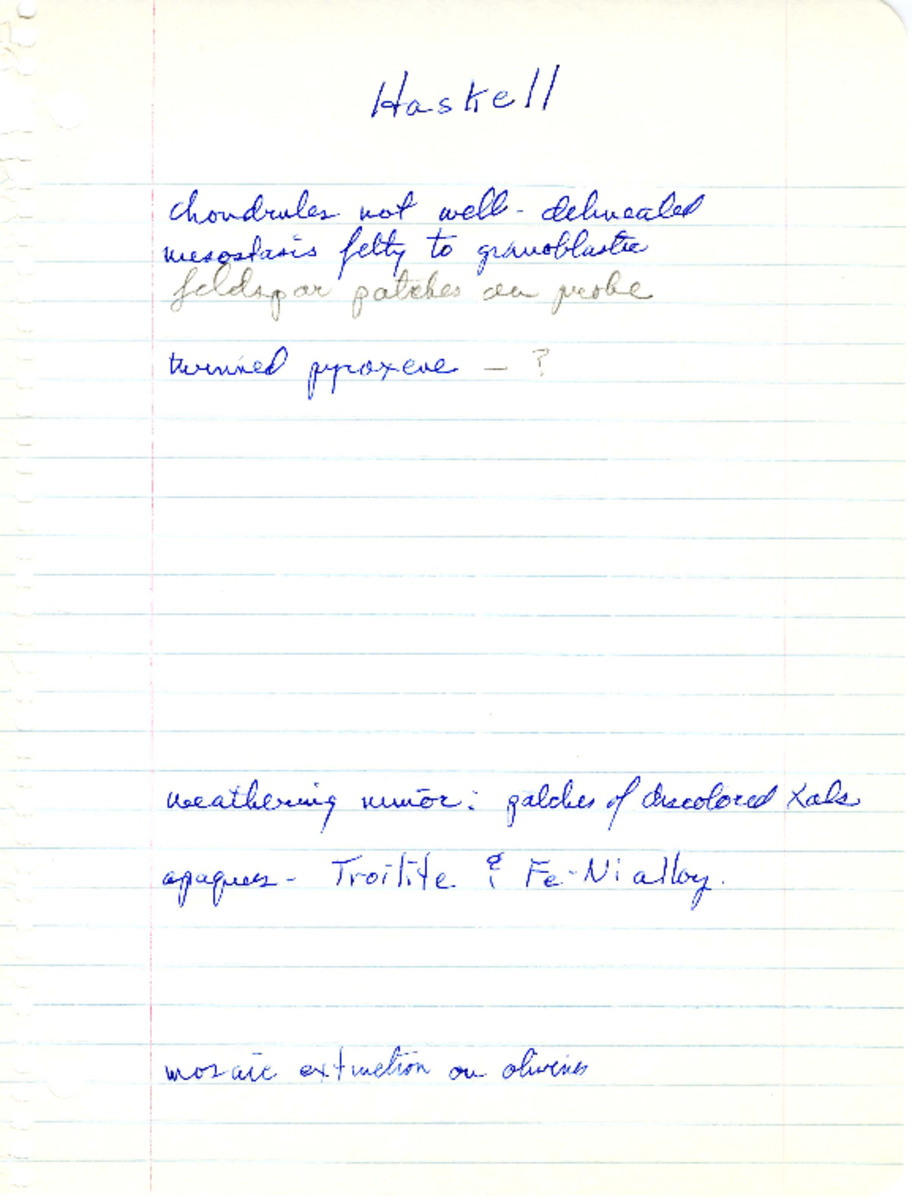 Haskell
chondrules not well-delineated
mesostasis felty to granoblastic
feldspar patches on probe
twinned pyroxene — ?
weathering minor: patches of discolored xals
opaques - Troilite & Fe-Ni alloy.
mosaic extinction on olivines